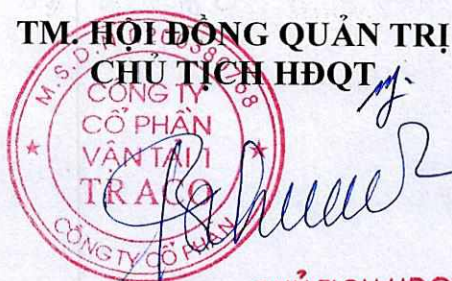 TM. HỘI ĐỒNG QUẢN TRỊ
CHỦ TỊCH HĐQT
M.S.D.N
CÔNG TY
CỔ PHẦN
VẬN TẢI 1
TRACO
CÔNG TY CỔ PHẦN